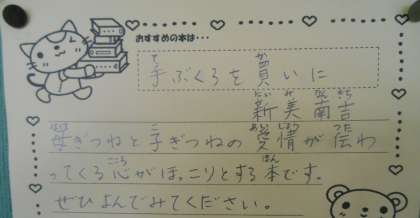 おすすめの本は…
手ぶくろを買いに
新美南吉
母ぎつねと子ぎつねの愛情が伝わ
ってくる心がほっこりとする本です。
ぜひよんでみてください。